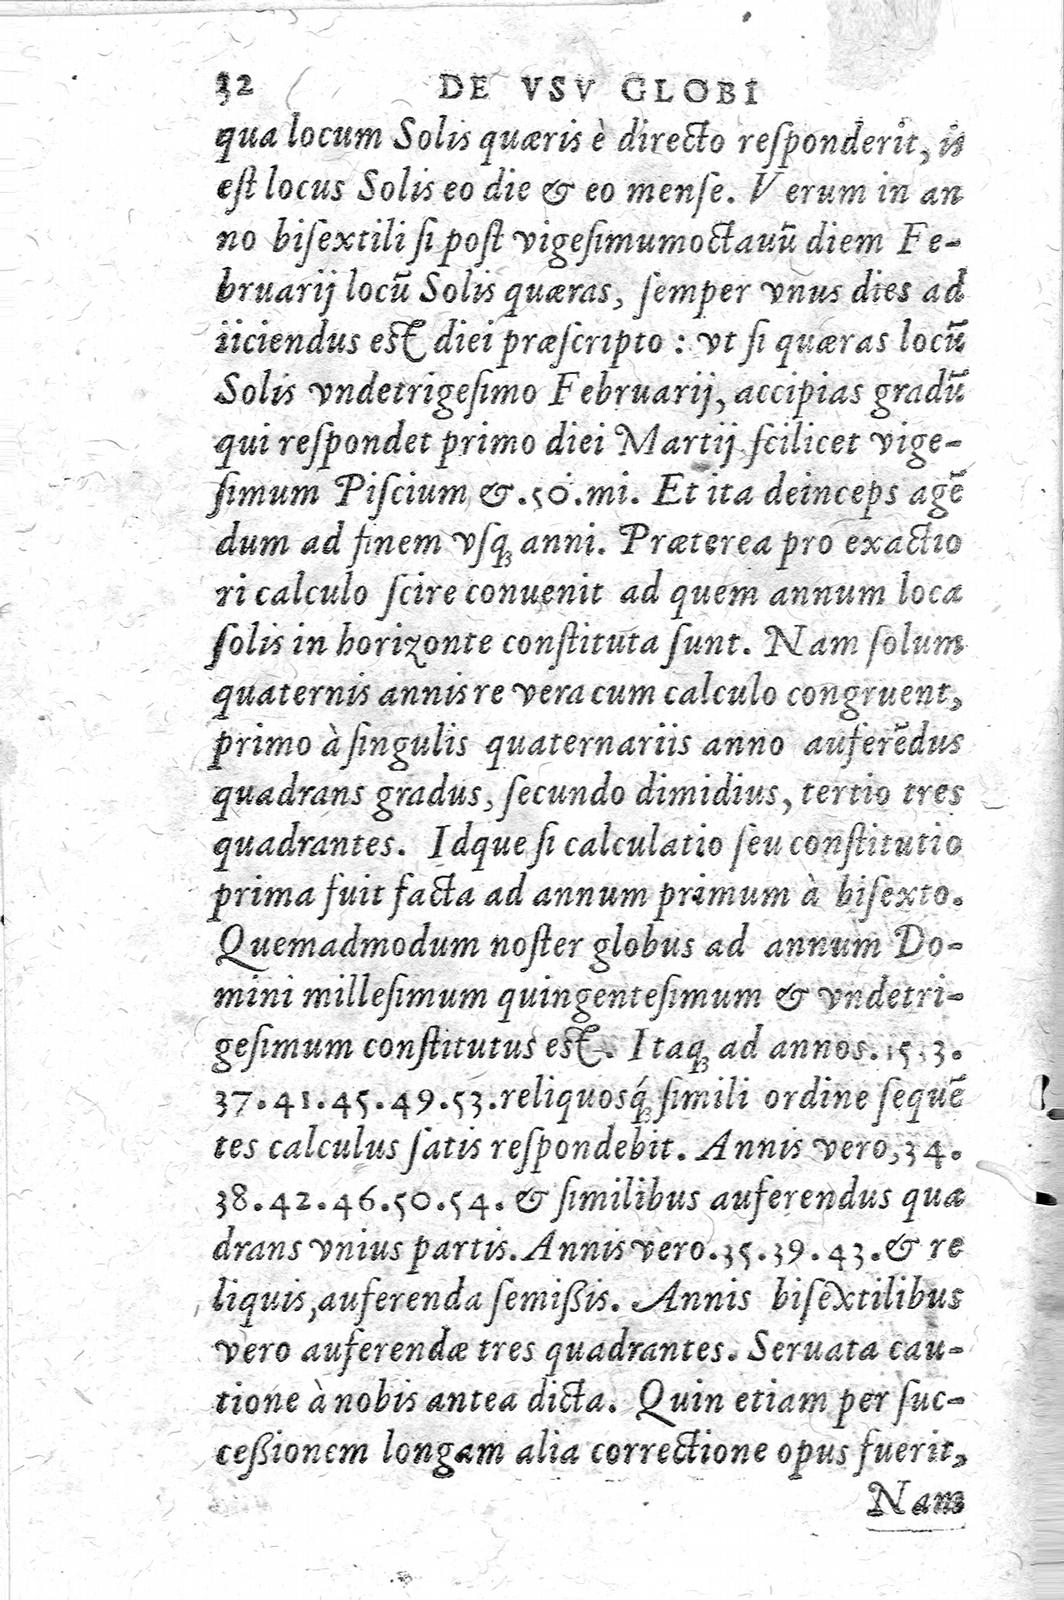 32 DE VSV GLOBI
qua locum Solis quæris è directo reſponderit, is
eſt locus Solis eo die & eo menſe. Verum in an
no biſextili ſi poſt vigeſimumoctauū diem Fe-
bruarij locū Solis quæras, ſemper vnus dies ad
iiciendus est diei præſcripto : vt ſi quæras locū
Solis vndetrigeſimo Februarij, accipias gradū
qui reſpondet primo diei Martij ſcilicet vige-
ſimum Piſcium &.50.mi. Et ita deinceps agē
dum ad finem vſq; anni. Præterea pro exactio
ri calculo ſcire conuenit ad quem annum loca
ſolis in horizonte conſtituta ſunt. Nam ſolum
quaternis annis re vera cum calculo congruent,
primo à ſingulis quaternariis anno auferēdus
quadrans gradus, ſecundo dimidius, tertio tres
quadrantes. Idque ſi calculatio ſeu conſtitutio
prima fuit facta ad annum primum à biſexto.
Quemadmodum noſter globus ad annum Do-
mini milleſimum quingenteſimum & vndetri-
geſimum conſtitutus est. Itaq; ad annos.
37.41.45.49.53.reliquosq́; ſimili ordine ſequē
tes calculus ſatis reſpondebit. Annis vero,34.
38.42.46.50.54. & ſimilibus auferendus qua
drans vnius partis. Annis vero.35.39.43.& re
liquis,auferenda ſemißis. Annis biſextilibus
vero auferendæ tres quadrantes. Seruata cau-
tione à nobis antea dicta. Quin etiam per ſuc-
ceßionem longam alia correctione opus fuerit,
Nam